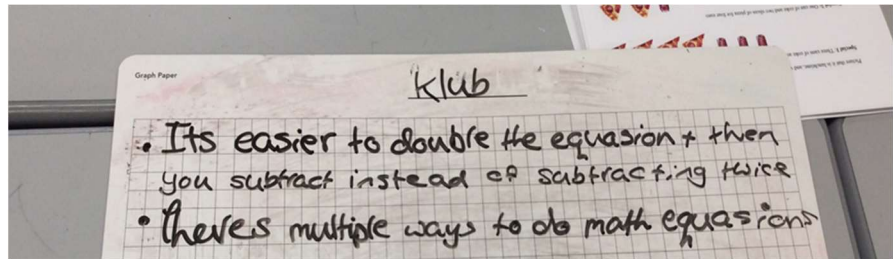 Graph Paper
Klub
• Its easier to double the equasion + then
you subtract instead of subtracting twice
• theres multiple ways to do math equasions